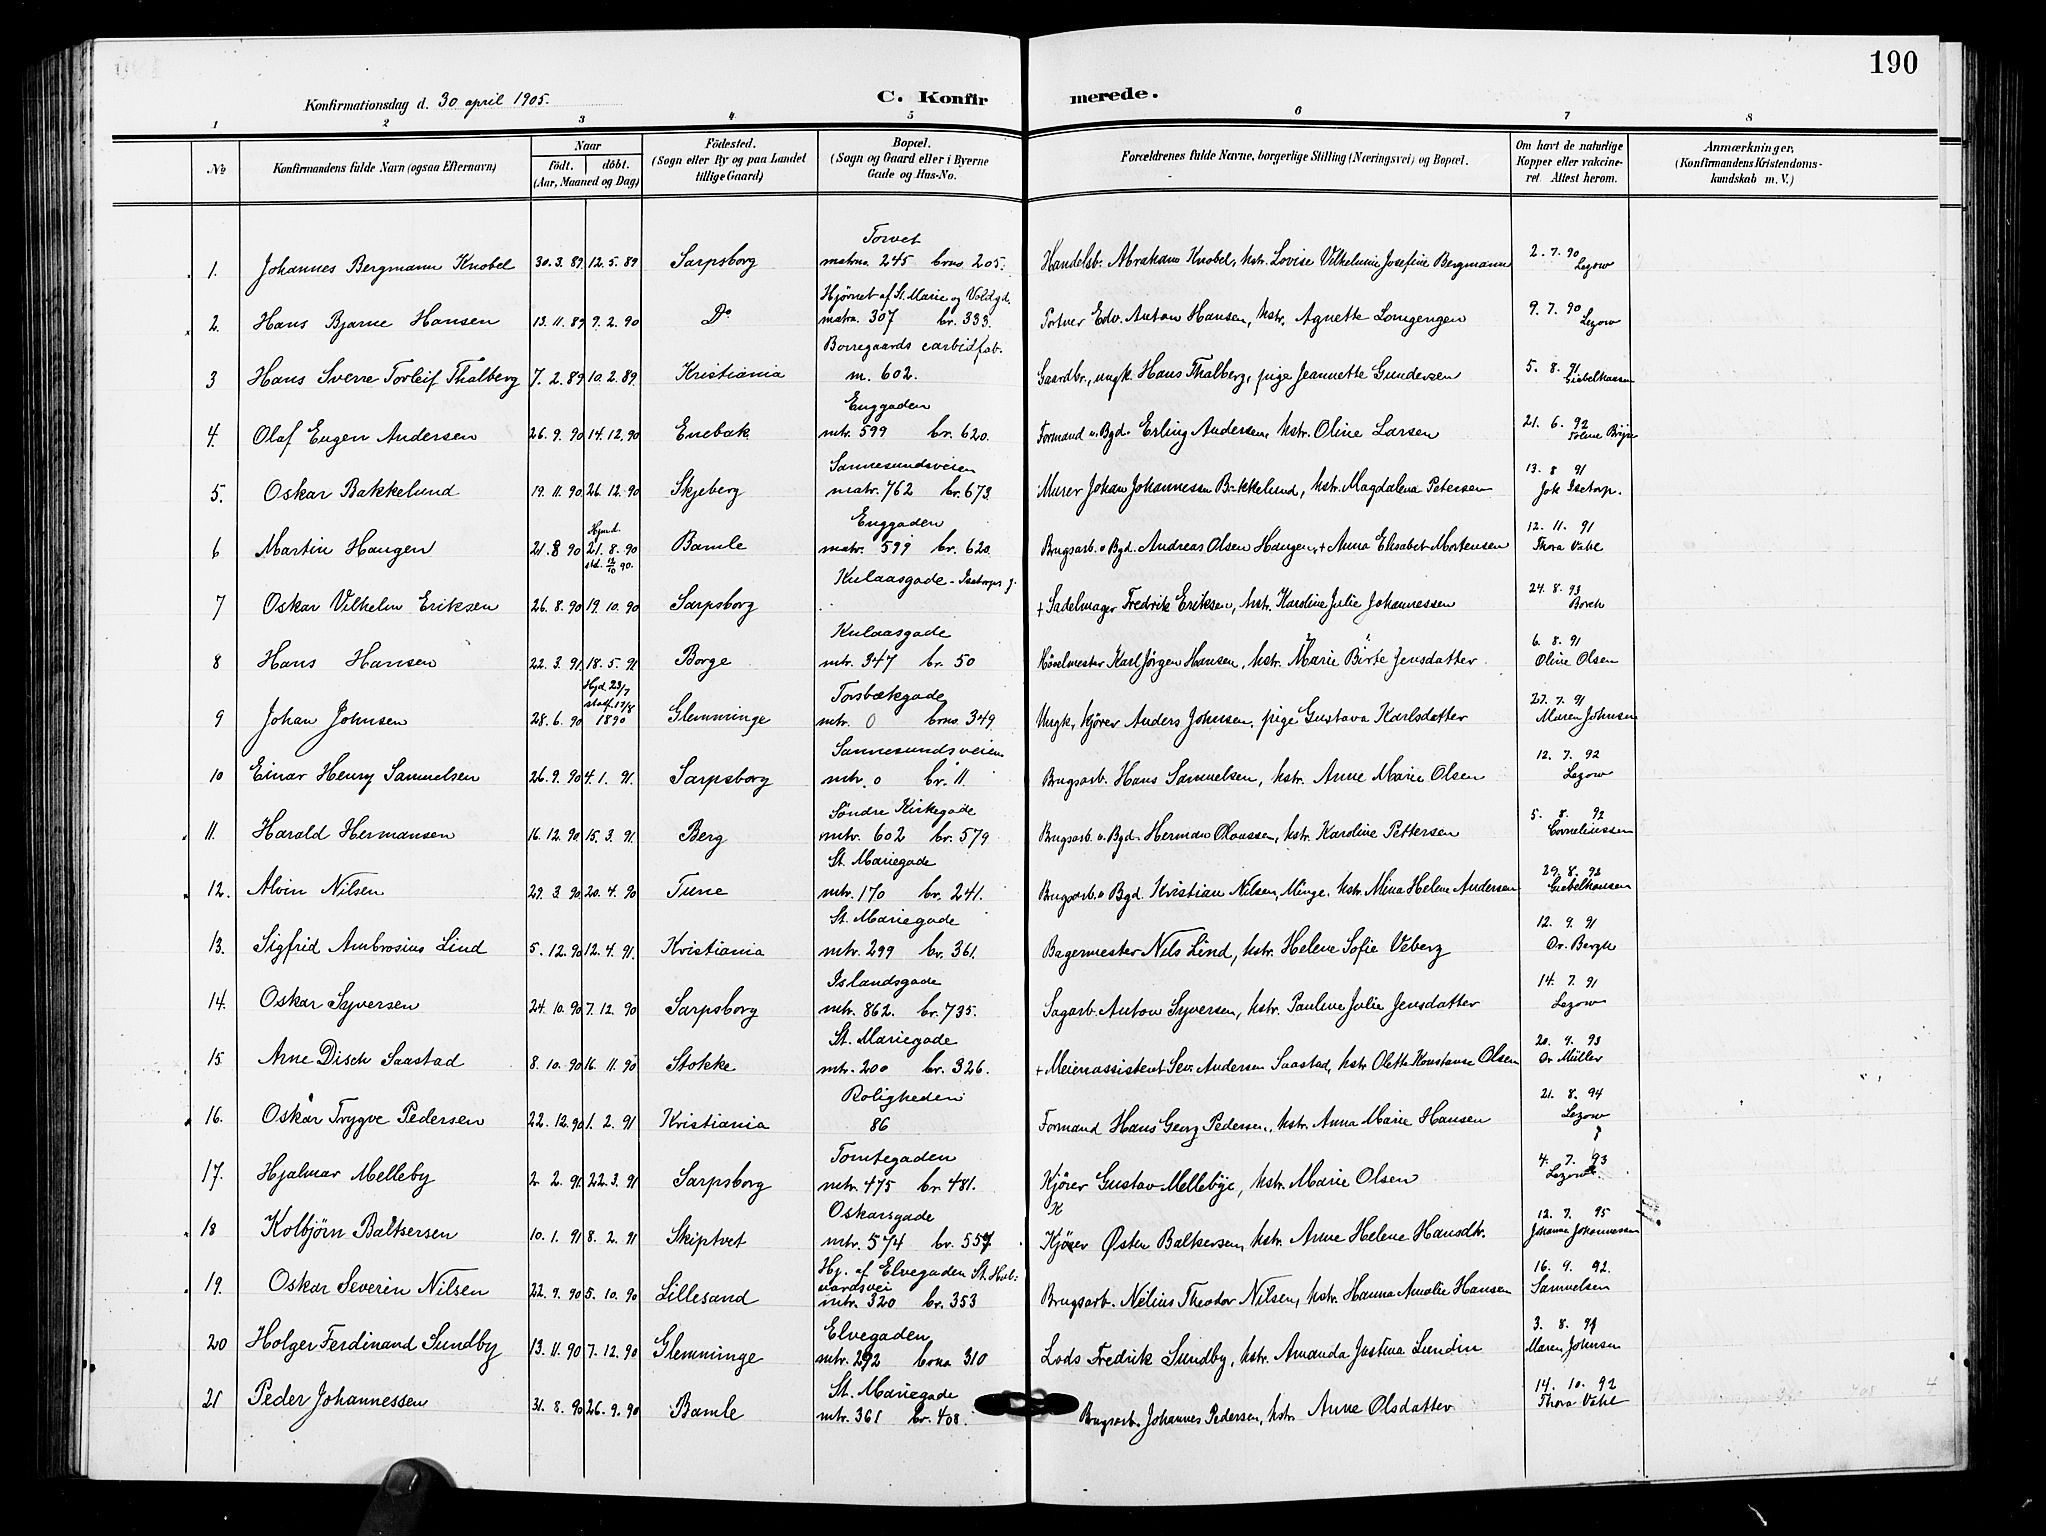 190
Konfirmationsdag d. 30 april 1905.
C. Konfirmerede.
1 2 3 4 5 6 7 8
№ Konfirmandens fulde Navn (ogsaa Efternavn)
Naar
født. döbt.
(Aar, Maaned og Dag)
Födested.
(Sogn eller By og paa Landet
tillige Gaard)
Bopæl.
(Sogn og Gaard eller i Byerne
Gade og Hus-No.
Forældrenes fulde Navne, borgerlige Stilling (Næringsvei) og Bopæl.
Om havt de naturlige
Kopper eller vakcine-
ret. Attest herom.
Anmærkninger,
(Konfirmandens Kristendoms-
kundskab m. V.)
Torvet
1. Johannes Bergmann Knobel 30. 3. 89 12. 5. 89 Sarpsborg matno. 245 brno. 205. Handelsb. Abraham Knobel, hstr. Lovise Vilhelmine Josefine Bergmann 2. 7. 90 Lezow
Hjørnet af St. Marie og Voldgd.
2. Hans Bjarne Hansen 13. 11. 89 9. 2. 90 Do matrn. 307 br. 333. Portner Edv. Anton Hansen, hstr. Agnette Longengen 9. 7. 90 Lezow
Borregaards carbidfab.
3 Hans Sverre Torleif Thalberg 7. 2. 89 10. 2. 89. Kristiania m. 602. Gaardbr., ungk. Hans Thalberg, pige Jeannette Gundersen 5. 8. 91 Giebelhausen
Enggaden
4. Olaf Eugen Andersen 26. 9. 90 14. 12. 90 Enebak mtr. 599 br. 620. Formand v. Bgd. Erling Andersen, hstr. Oline Larsen 21. 6. 92
Sannesundsveien
5. Oskar Bakkelund 19. 11. 90 26. 12. 90 Skjeberg matr. 762 br. 673. Murer Johan Johannessen Bakkelund, hstr. Magdalena Petersen 13. 8 91 Joh Isetorp.
Enggaden
6 Martin Haugen 21. 8 90 Hjmd. 21. 8. 90 std. 12/10 90. Bamle matr. 599 br. 620. Brugsarb. v Bgd. Andreas Olsen Haugen, + Anna Elisabet Mortensen 12. 11. 91 Thora Vahl
Kulaasgade - Isetorps g.
7 Oskar Vilhelm Eriksen 26. 8. 90 19. 10. 90 Sarpsborg + Sadelmager Fredrik Eriksen, hstr. Karoline Julie Johannessen 24. 8. 93 Borch
Kulaasgade
8 Hans Hansen 22. 3. 91 18. 5. 91 Borge mtr. 347 br. 50 Karl Jörgen Hansen, hstr. Marie Birte Jensdatter 6. 8. 91 Oline Olsen
Torsbækgade
9 Johan Johnsen 28. 6. 90 Hjd 23/7 stadf. 17/8 1890 Glemminge mtr. 0 brno. 349 Ungk, kjörer Anders Johnsen, pige Gustava Karlsdatter 27. 7. 91 Maren Johnsen
Sannesundsveien
10 Einar Henry Samuelsen 26. 9. 90 4. 1. 91. Sarpsborg mtr. 0 br. 11. Brugsarb. Hans Samuelsen, hstr. Anne Marie Olsen 12. 7. 92 Lezow
Söndre Kirkegade
11. Harald Hermansen 16. 12. 90 15. 3. 91. Berg mtr. 602 br. 579 Brugsarb. v. Bgd. Herman Olaussen, hstr. Karoline Pettersen 5. 8. 92 Corneliussen
St. Mariegade
12. Alvin Nilsen 29. 3. 90 20. 4. 90 Tune mtr. 170 br. 241. Brugsarb. v Bgd. Kristian Nilsen, Minge, hstr. Mina Helene Andersen 29. 8. 93 Giebelhausen
St. Mariegade
13. Sigfrid Ambrosius Lind 5. 12. 90 12. 4. 91. Kristiania mtr. 299 br. 361. Bagermester Nils Lind, hstr. Helene Sofie Veberg 12. 9. 91 Dr. Bergh
Islandsgade
14. Oskar Syversen 24. 10. 90 7. 12. 90 Sarpsborg mtr. 862. br. 735. Sagarb. Anton Syversen, hstr. Pauline Julie Jensdatter 14. 7. 91 Lezow
St. Mariegade
15 Arne Disch Saastad 8. 10. 90 16. 11. 90 Stokke mtr. 200 br. 326. + Meieriassistent Sev. Andersen Saastad, hstr. Olette Konstanse Olsen 20. 9. 93 Dr Müller
Roligheden
16. Oskar Trygve Pedersen 22. 12. 90 1. 2. 91 Kristiania 86 Formand Hans Georg Pedersen, hstr. Anna Marie Hansen 21. 8. 94 Lezow
Tomtegaden
17. Hjalmar Melleby 2. 2. 91 22. 3. 91 Sarpsborg mtr. 475 br. 481. Kjörer Gustav Mellebye, hstr. Marie Olsen 4. 7. 93 Lezow
Oskarsgade
18 Kolbjörn Baltsersen 10. 1. 91 8. 2. 91 Skiptvet mtr. 574 br. 557 Kjörer Østen Baltsersen, hstr. Anne Helene Hansdtr. 12. 7. 95 Johanne Johannessen
Hj. af Elvegaden St. Halvardsvei
19. Oskar Severin Nilsen 22. 9. 90 5. 10. 90 Lillesand mtr. 320 br. 353 Brugsarb. Nelius Theodor Nilsen, hstr. Hanna Amalie Hansen 16. 9. 92. Samuelsen
Elvegaden
20 Holger Ferdinand Sundby 13. 11. 90 7. 12. 90 Glemminge mtr. 292 brno 310 Lods Fredrik Sundby, hstr. Amanda Justina Lundin 3. 8. 91 Maren Johnsen
St. Mariegade
21 Peder Johannessen 31. 8. 90 26. 9. 90 Bamle mtr. 361 br. 408. Brugsarb. Johannes Pedersen, hstr. Anne Olsdatter 14. 10. 92 Thora Vahl